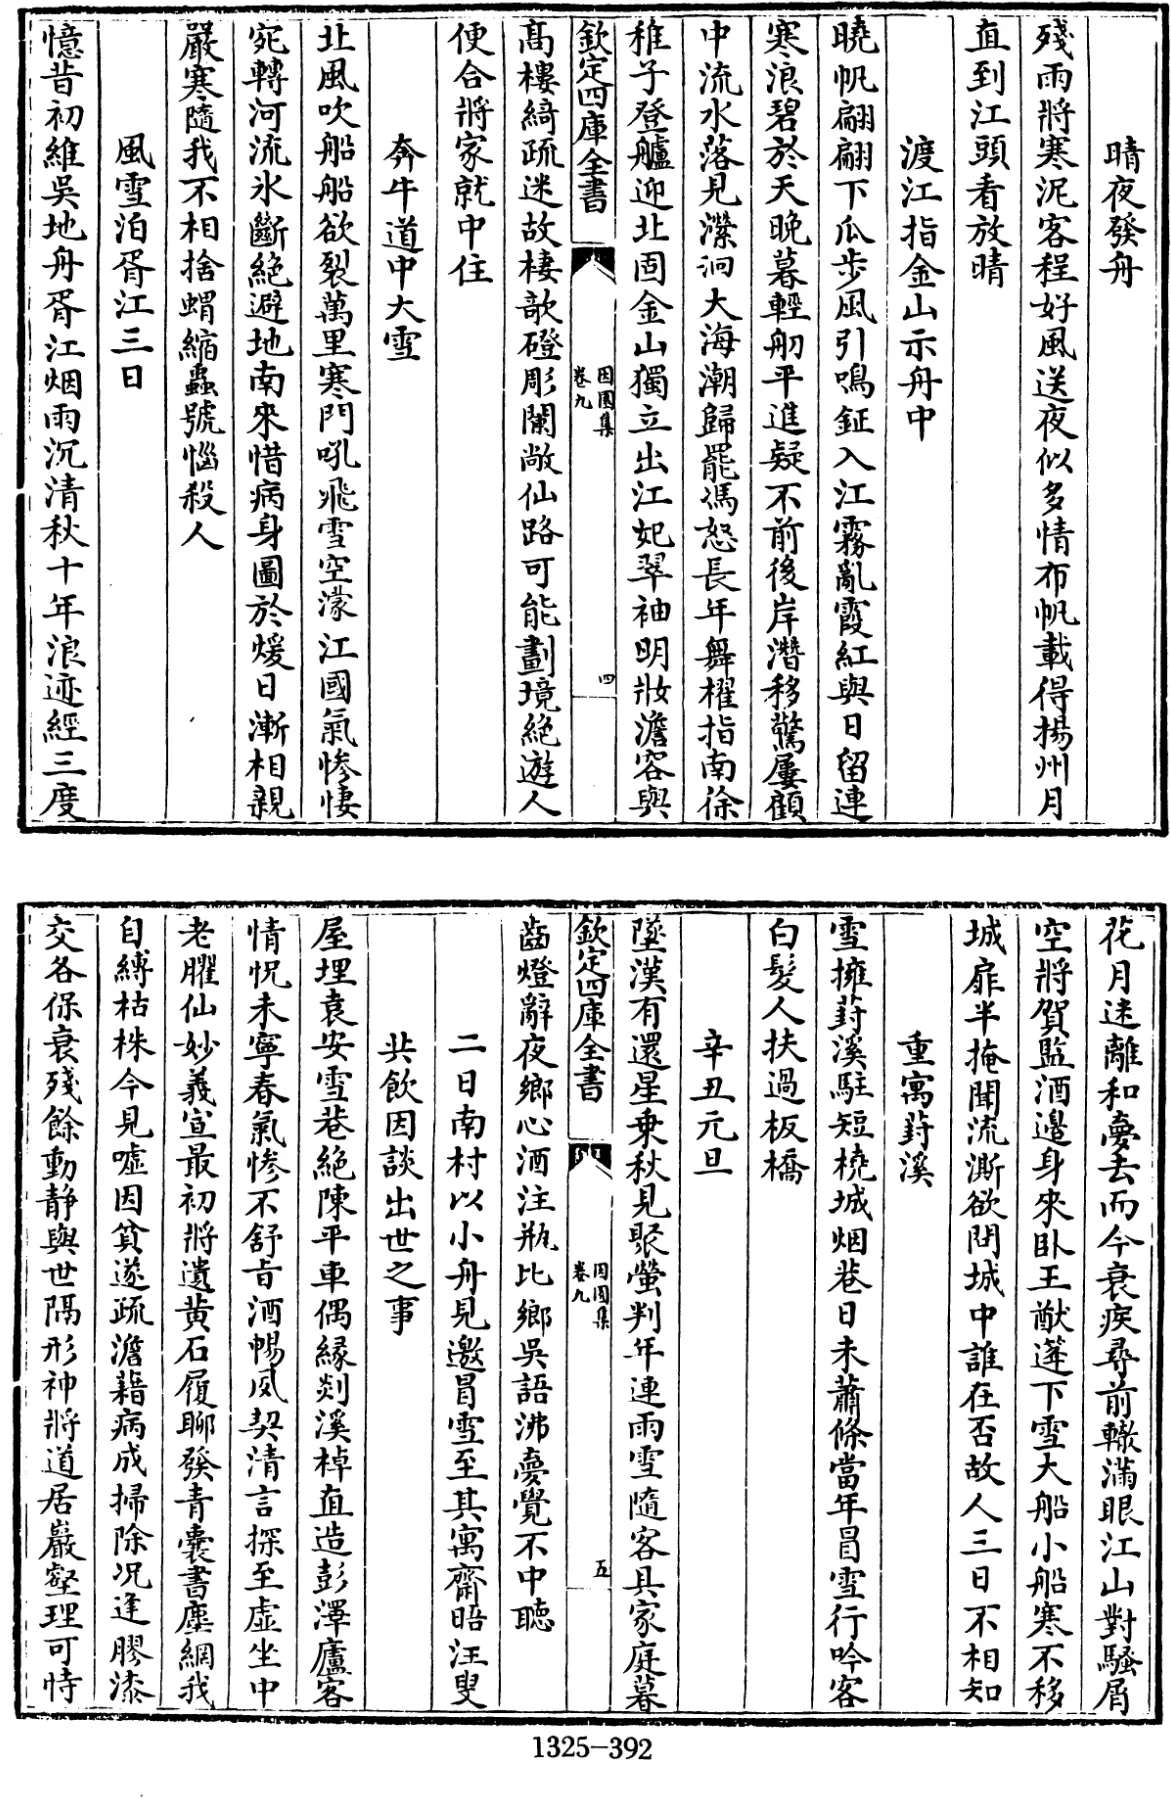 晴夜發舟
殘雨將寒泥客程好風送夜似多情布帆載得揚州月
直到江頭看放晴
渡江指金山示舟中
曉帆翩翩下瓜步風引鳴鉦入江霧亂霞紅與日留連
寒浪碧於天晚暮輕舠平進疑不前後岸潛移驚屢顧
中流水落見濴洄大海潮歸罷馮怒長年舞櫂指南徐
稚子登艫迎北固金山獨立出江妃翠袖明妝澹容與
欽定四庫全書
因園集
卷九
四
髙樓綺疏迷故棲歌磴彫闌敞仙路可能劃境絶遊人
便合將家就中住
奔牛道中大雪
北風吹船船欲裂萬里寒門吼飛雪空濛江國氣慘悽
宛轉河流氷斷絶避地南來惜病身圖於煖日漸相親
嚴寒隨我不相捨蝟縮蟲號惱殺人
風雪泊胥江三日
憶昔初維吳地舟胥江烟雨沉清秋十年浪迹經三度
花月迷離和夢去而今衰疾尋前轍滿眼江山對騷屑
空將賀監酒邊身來臥王猷篷下雪大船小船寒不移
城扉半掩聞流澌欲閉城中誰在否故人三日不相知
重寓葑溪
雪擁葑溪駐短橈城烟巷日未蕭條當年冒雪行吟客
白髮人扶過板橋
辛丑元旦
墜漢有還星乗秋見聚螢判年連雨雪隨客具家庭暮
欽定四庫全書
因園集
卷九
五
齒燈辭夜鄉心酒注瓶比鄉吳語沸夢覺不中聽
二日南村以小舟見邀冒雪至其寓齋晤汪叟
共飲因談出世之事
屋埋袁安雪巷絶陳平車偶縁剡溪棹直造彭澤廬客
情怳未寧春氣慘不舒㫖酒暢夙契清言探至虛坐中
老臞仙妙義宣最初將遺黄石履聊發青囊書塵網我
自縛枯株今見噓因貧遂疏澹藉病成掃除况逢膠漆
交各保衰殘餘動静與世隔形神將道居巖壑理可恃
1325—392